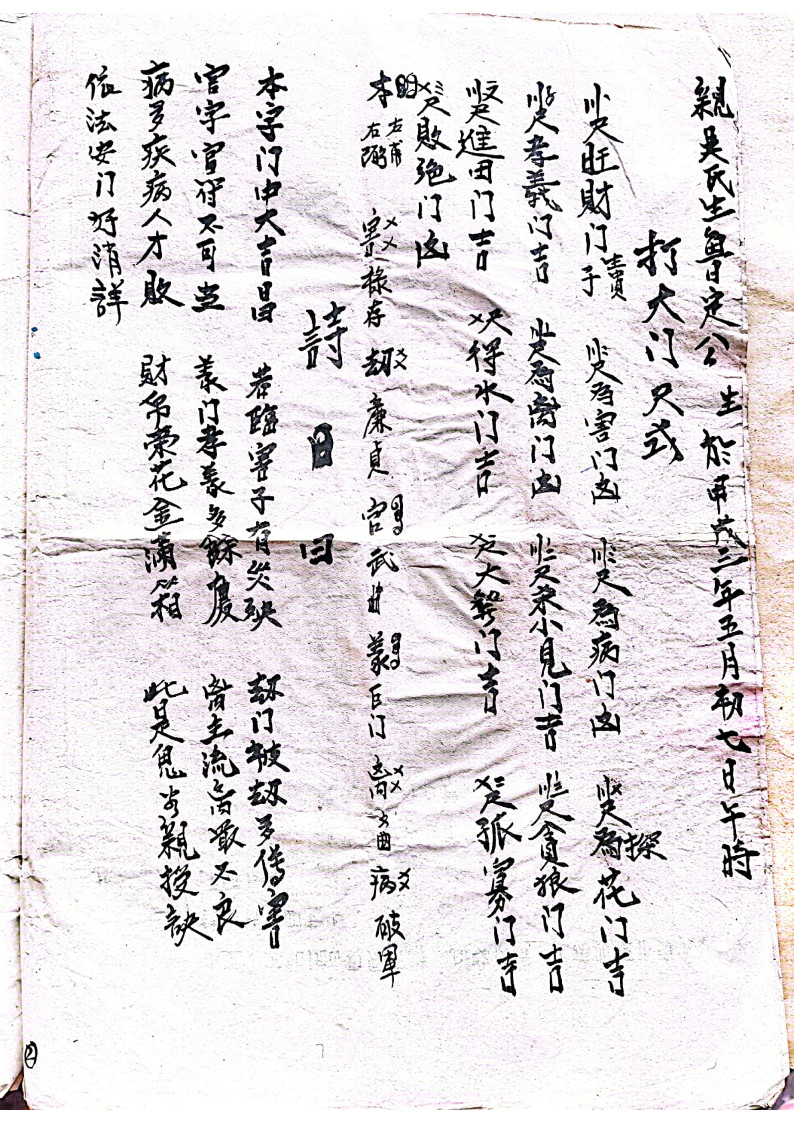 親吴氏生魯定公生於甲戌三年五月初七日午時
打大门尺式
尺旺財门子貴 尺為害门凶 尺為病门凶 尺為探花门吉
尺孝義门吉 尺為离门凶 尺小見门吉 尺貪狼门吉
尺進田门吉 尺得水门吉 尺大發门吉 尺孤寡门吉
尺敗绝门凶
本左輔右弼 害禄存 劫廉貞 官武曲 義巨门 离文曲 病破軍
詩曰
本字门中大吉昌 若臨害子有災殃 劫门被劫多傳害
官字官得不可当 義门孝義多餘慶 离主流离最不良
病多疾病人才敗 財帛荣花金满箱 此是鬼谷親授訣
依法安门好消詳
②